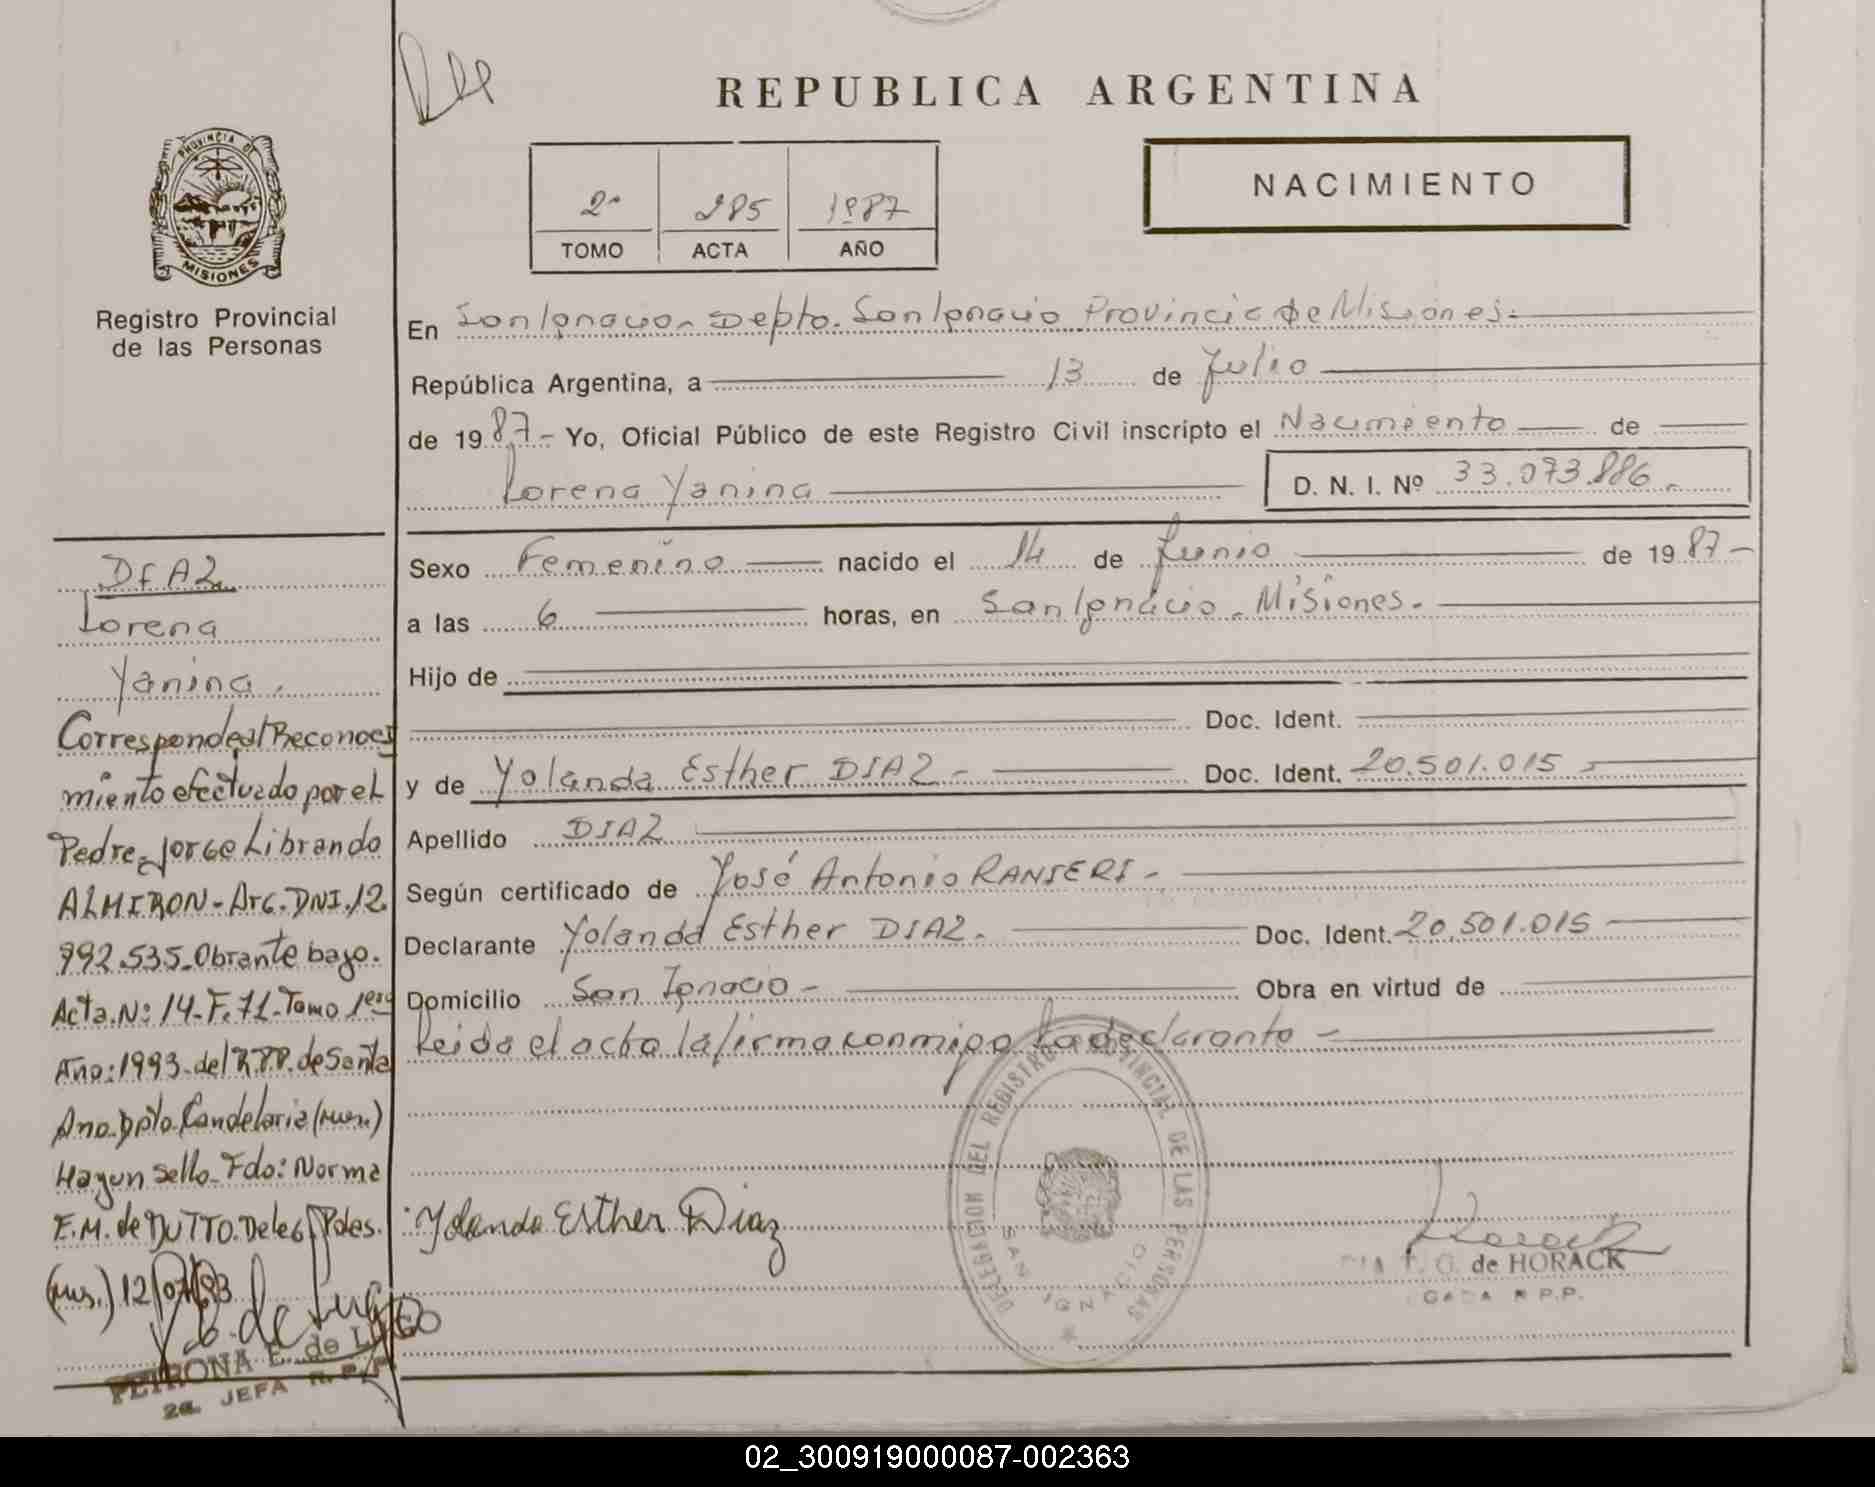 REPUBLICA ARGENTINA
PROVINCIA DE
MISIONES
Registro Provincial
de las Personas
2º 285 1987
TOMO ACTA AÑO
NACIMIENTO
En San Ignacio - Depto. San Ignacio Provincia de Misiones.
República Argentina, a 13 de Julio
de 1987- Yo, Oficial Público de este Registro Civil inscripto el Nacimiento de
Lorena Yanina
D. N. I. Nº 33.073.886.
Sexo Femenino nacido el 14 de Junio de 1987-
a las 6 horas, en San Ignacio - Misiones.
Hijo de
Doc. Ident.
y de Yolanda Esther DIAZ - Doc. Ident. 20.501.015
Apellido DIAZ
Según certificado de José Antonio RANIERI -
Declarante Yolanda Esther DIAZ. Doc. Ident. 20.501.015
Domicilio San Ignacio - Obra en virtud de
Leida el acta la firma conmigo la declarante -
Yolanda Esther Diaz
DELEGACION DEL REGISTRO PROVINCIAL DE LAS PERSONAS
SAN IGNACIO
de HORACK
R.P.P.
DIAZ
Lorena
Yanina.
Corresponde al Reconoci
miento efectuado por el
Padre, Jorge Librando
ALMIRON - Arg. DNI. 12.
992.535. Obrante bajo.
Acta. Nº 14 - F. 71 - Tomo 1ero
Año: 1993 - del R.P.P. de Santa
Ana. Dpto. Candelaria (Mnes.)
Hay un sello - Fdo: Norma
E.M. de DUTTO. Deleg
(Mns.) 12/07/93
PETRONA E. de LUGO
2a. JEFA R.P.P.
02_300919000087-002363